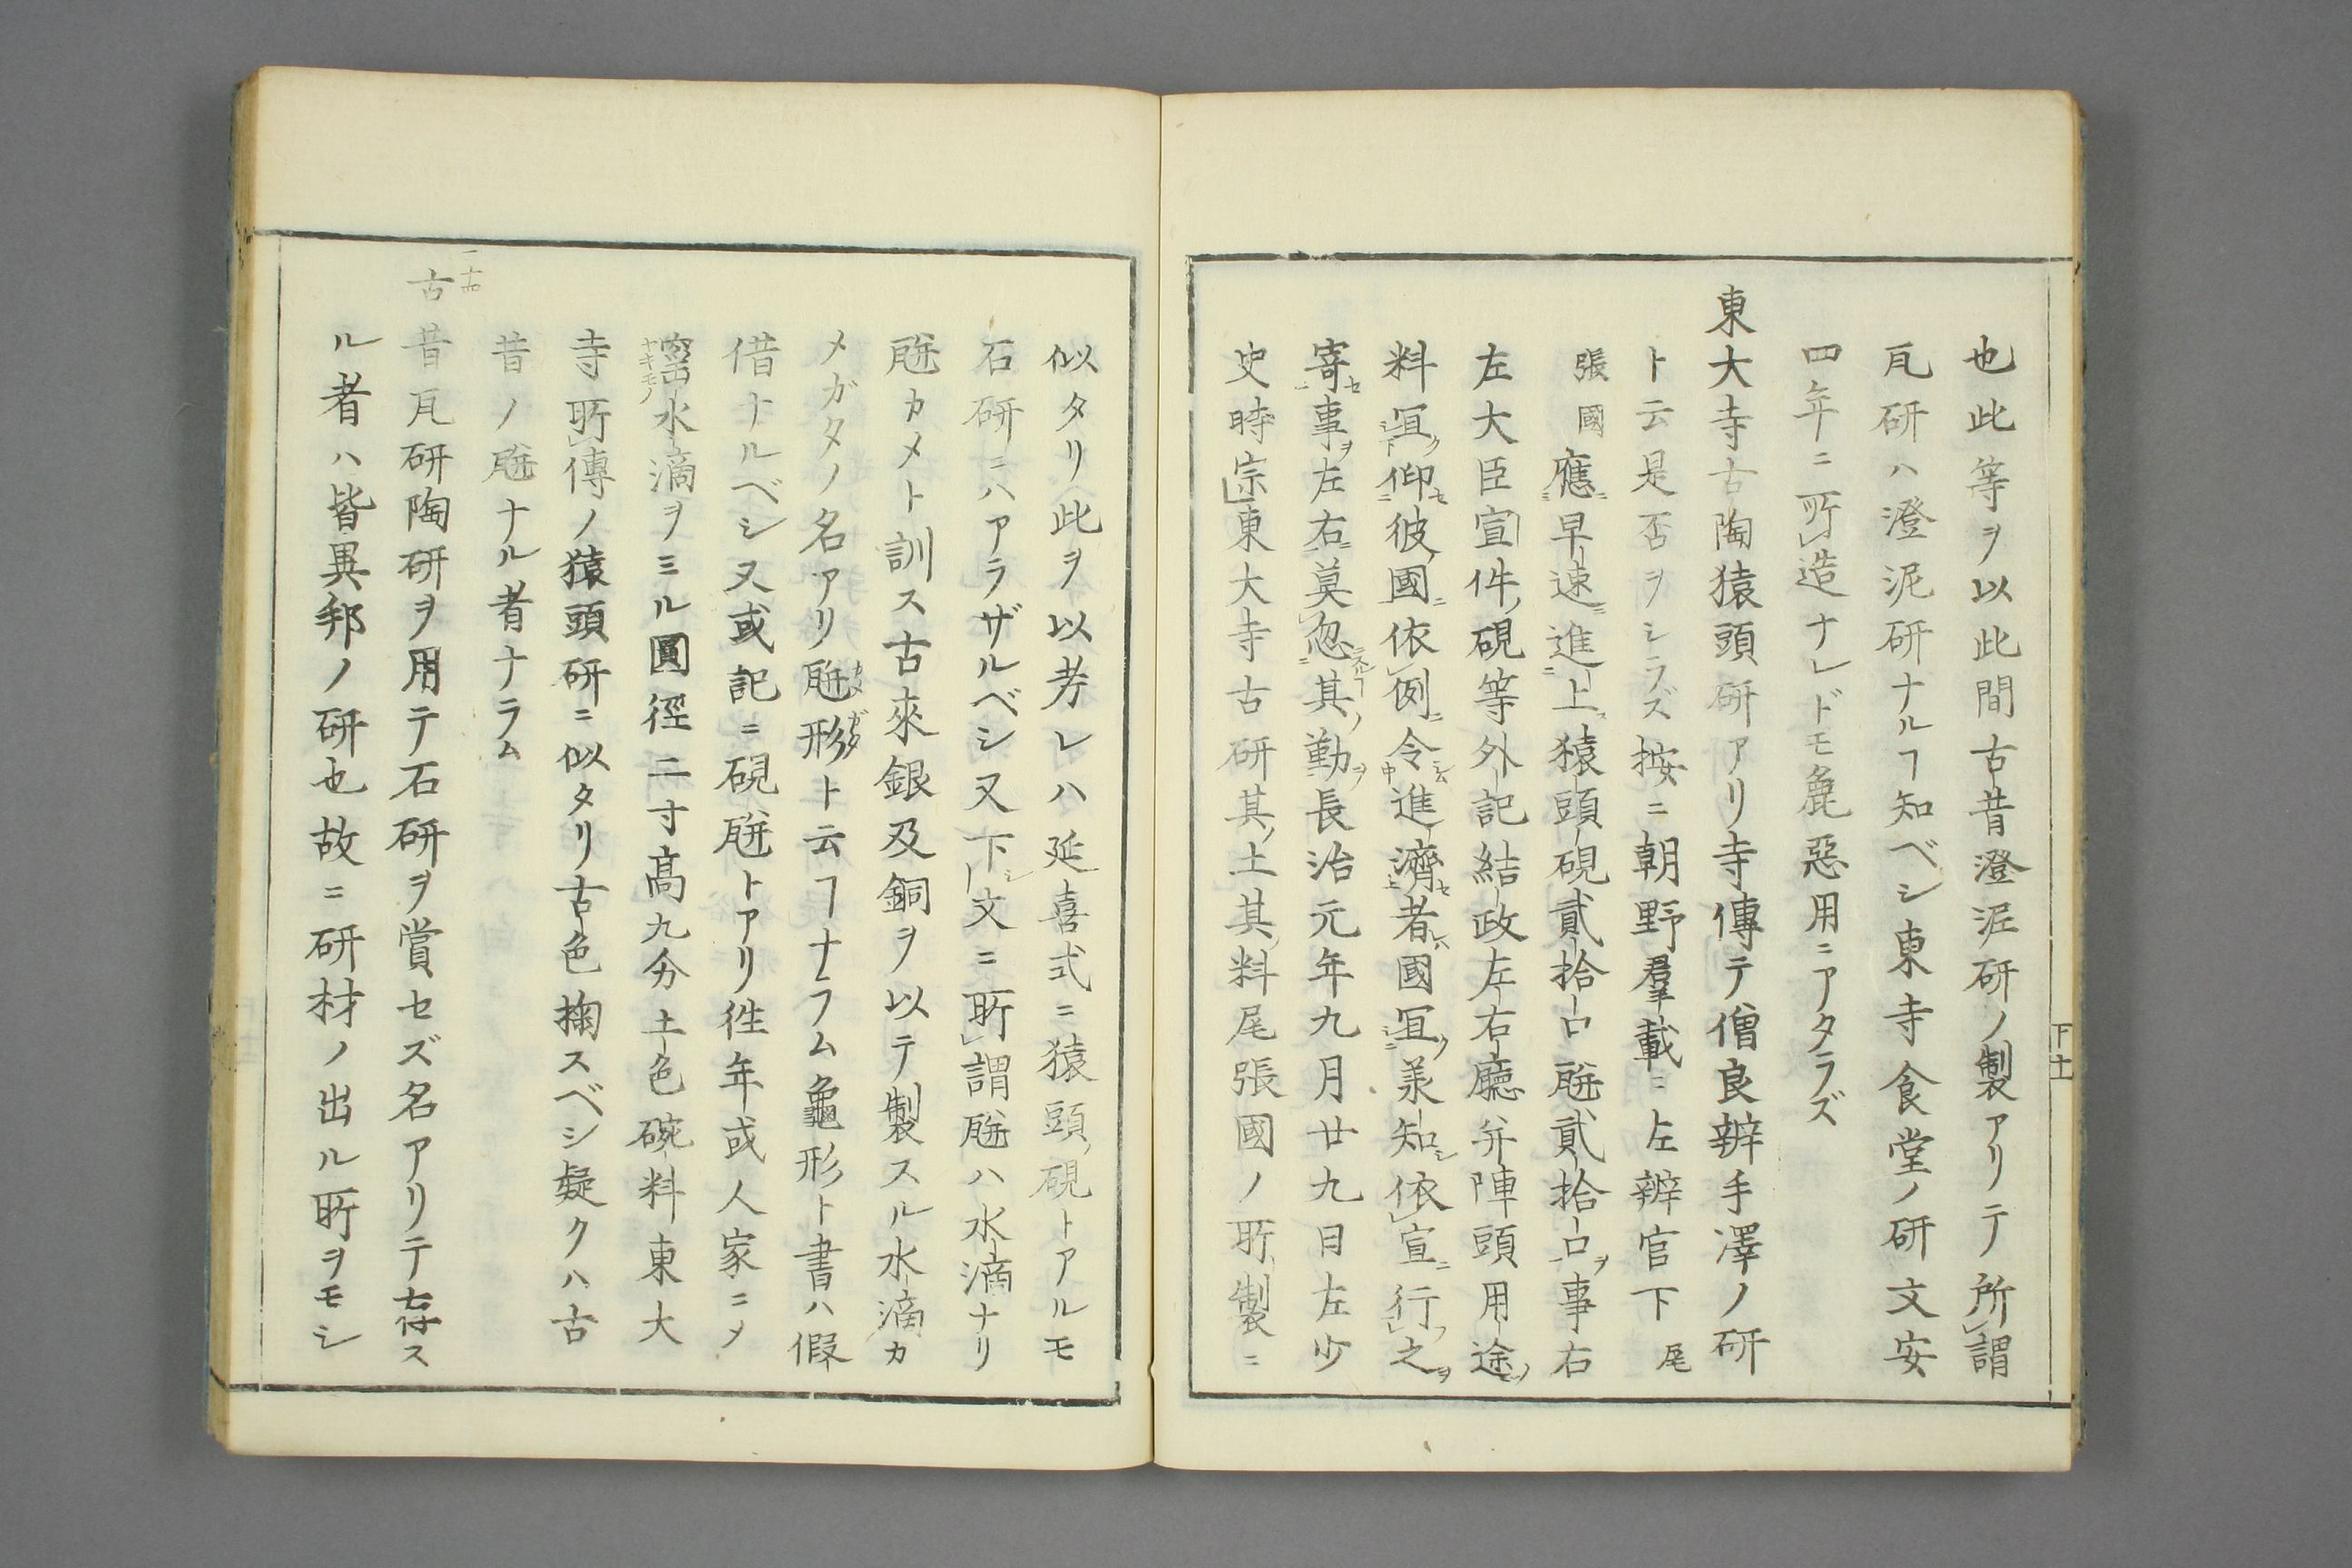 也此等ヲ以此間古昔澄泥研ノ製アリテ所謂
瓦研ハ澄泥研ナルヿ知ベシ東寺食堂ノ研文安
四年ニ所造ナレドモ麁惡用ニアタラズ
東大寺古陶猿頭研アリ寺傳テ僧良辨手澤ノ研
ト云是否ヲシラズ按ニ朝野羣載ニ左辨官下 尾
張國 應早速進上猿頭硯貳拾口瓶貳拾口事右
左大臣宣件硯等外記結政左右廳幷陣頭用途
料宜仰彼國依例令進濟者國宜羕知依宣行之
寄事左右莫忽其勤長治元年九月廿九日左少
史時宗東大寺古研其土其料尾張國ノ所製ニ
下十一
似タリ此ヲ以考レハ延喜式ニ猿頭硯トアルモ
石研ニハアラザルベシ又下文ニ所謂瓶ハ水滴ナリ
瓶カメト訓ス古來銀及銅ヲ以テ製スル水滴カ
メガタノ名アリ瓶形ト云ヿナラム龜形ト書ハ假
借ナルベシ又或記ニ硯瓶トアリ徃年或人家ニメ
窰水滴ヲミル圓徑二寸高九分土色碗料東大
ヤキモノ
寺所傳ノ猿頭研ニ似タリ古色掬スベシ疑クハ古
昔ノ瓶ナル者ナラム
二十四
古昔瓦研陶研ヲ用テ石研ヲ賞セズ名アリテ存ス
ル者ハ皆異邦ノ研也故ニ研材ノ出ル所ヲモシ